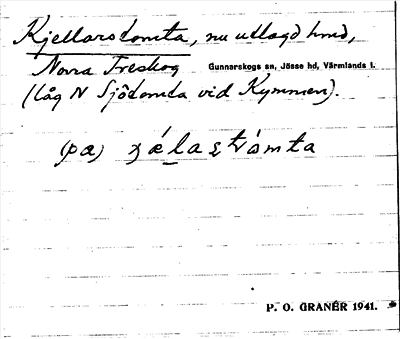 Kjellarstomta, nu utlagd hmd,
Norra Treskog Gunnarskogs sn, Jösse hd, Värmlands l.
(låg N Sjötomta vid Kymmen).
(pa)
P. O. GRANÉR 1941.